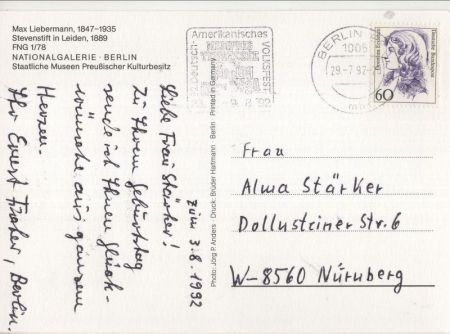 Max Liebermann, 1847–1935
Stevenstift in Leiden, 1889
FNG 1/78
NATIONALGALERIE · BERLIN
Staatliche Museen Preußischer Kulturbesitz
Amerikanisches
VOLKSFEST
BERLIN
1000
29.-7.92
Deutsche Bundespost
60
Photo: Jörg P. Anders · Druck: Brüder Hartmann · Berlin · Printed in Germany
zum 3.8.1992
Liebe Frau Stärker!
Zu Ihrem Geburtstag
sende ich Ihnen Glück-
wünsche aus ganzem
Herzen.
Ihr Ernst Froher, Berlin.
Frau
Alma Stärker
Dollnsteiner Str. 6
W-8560 Nürnberg